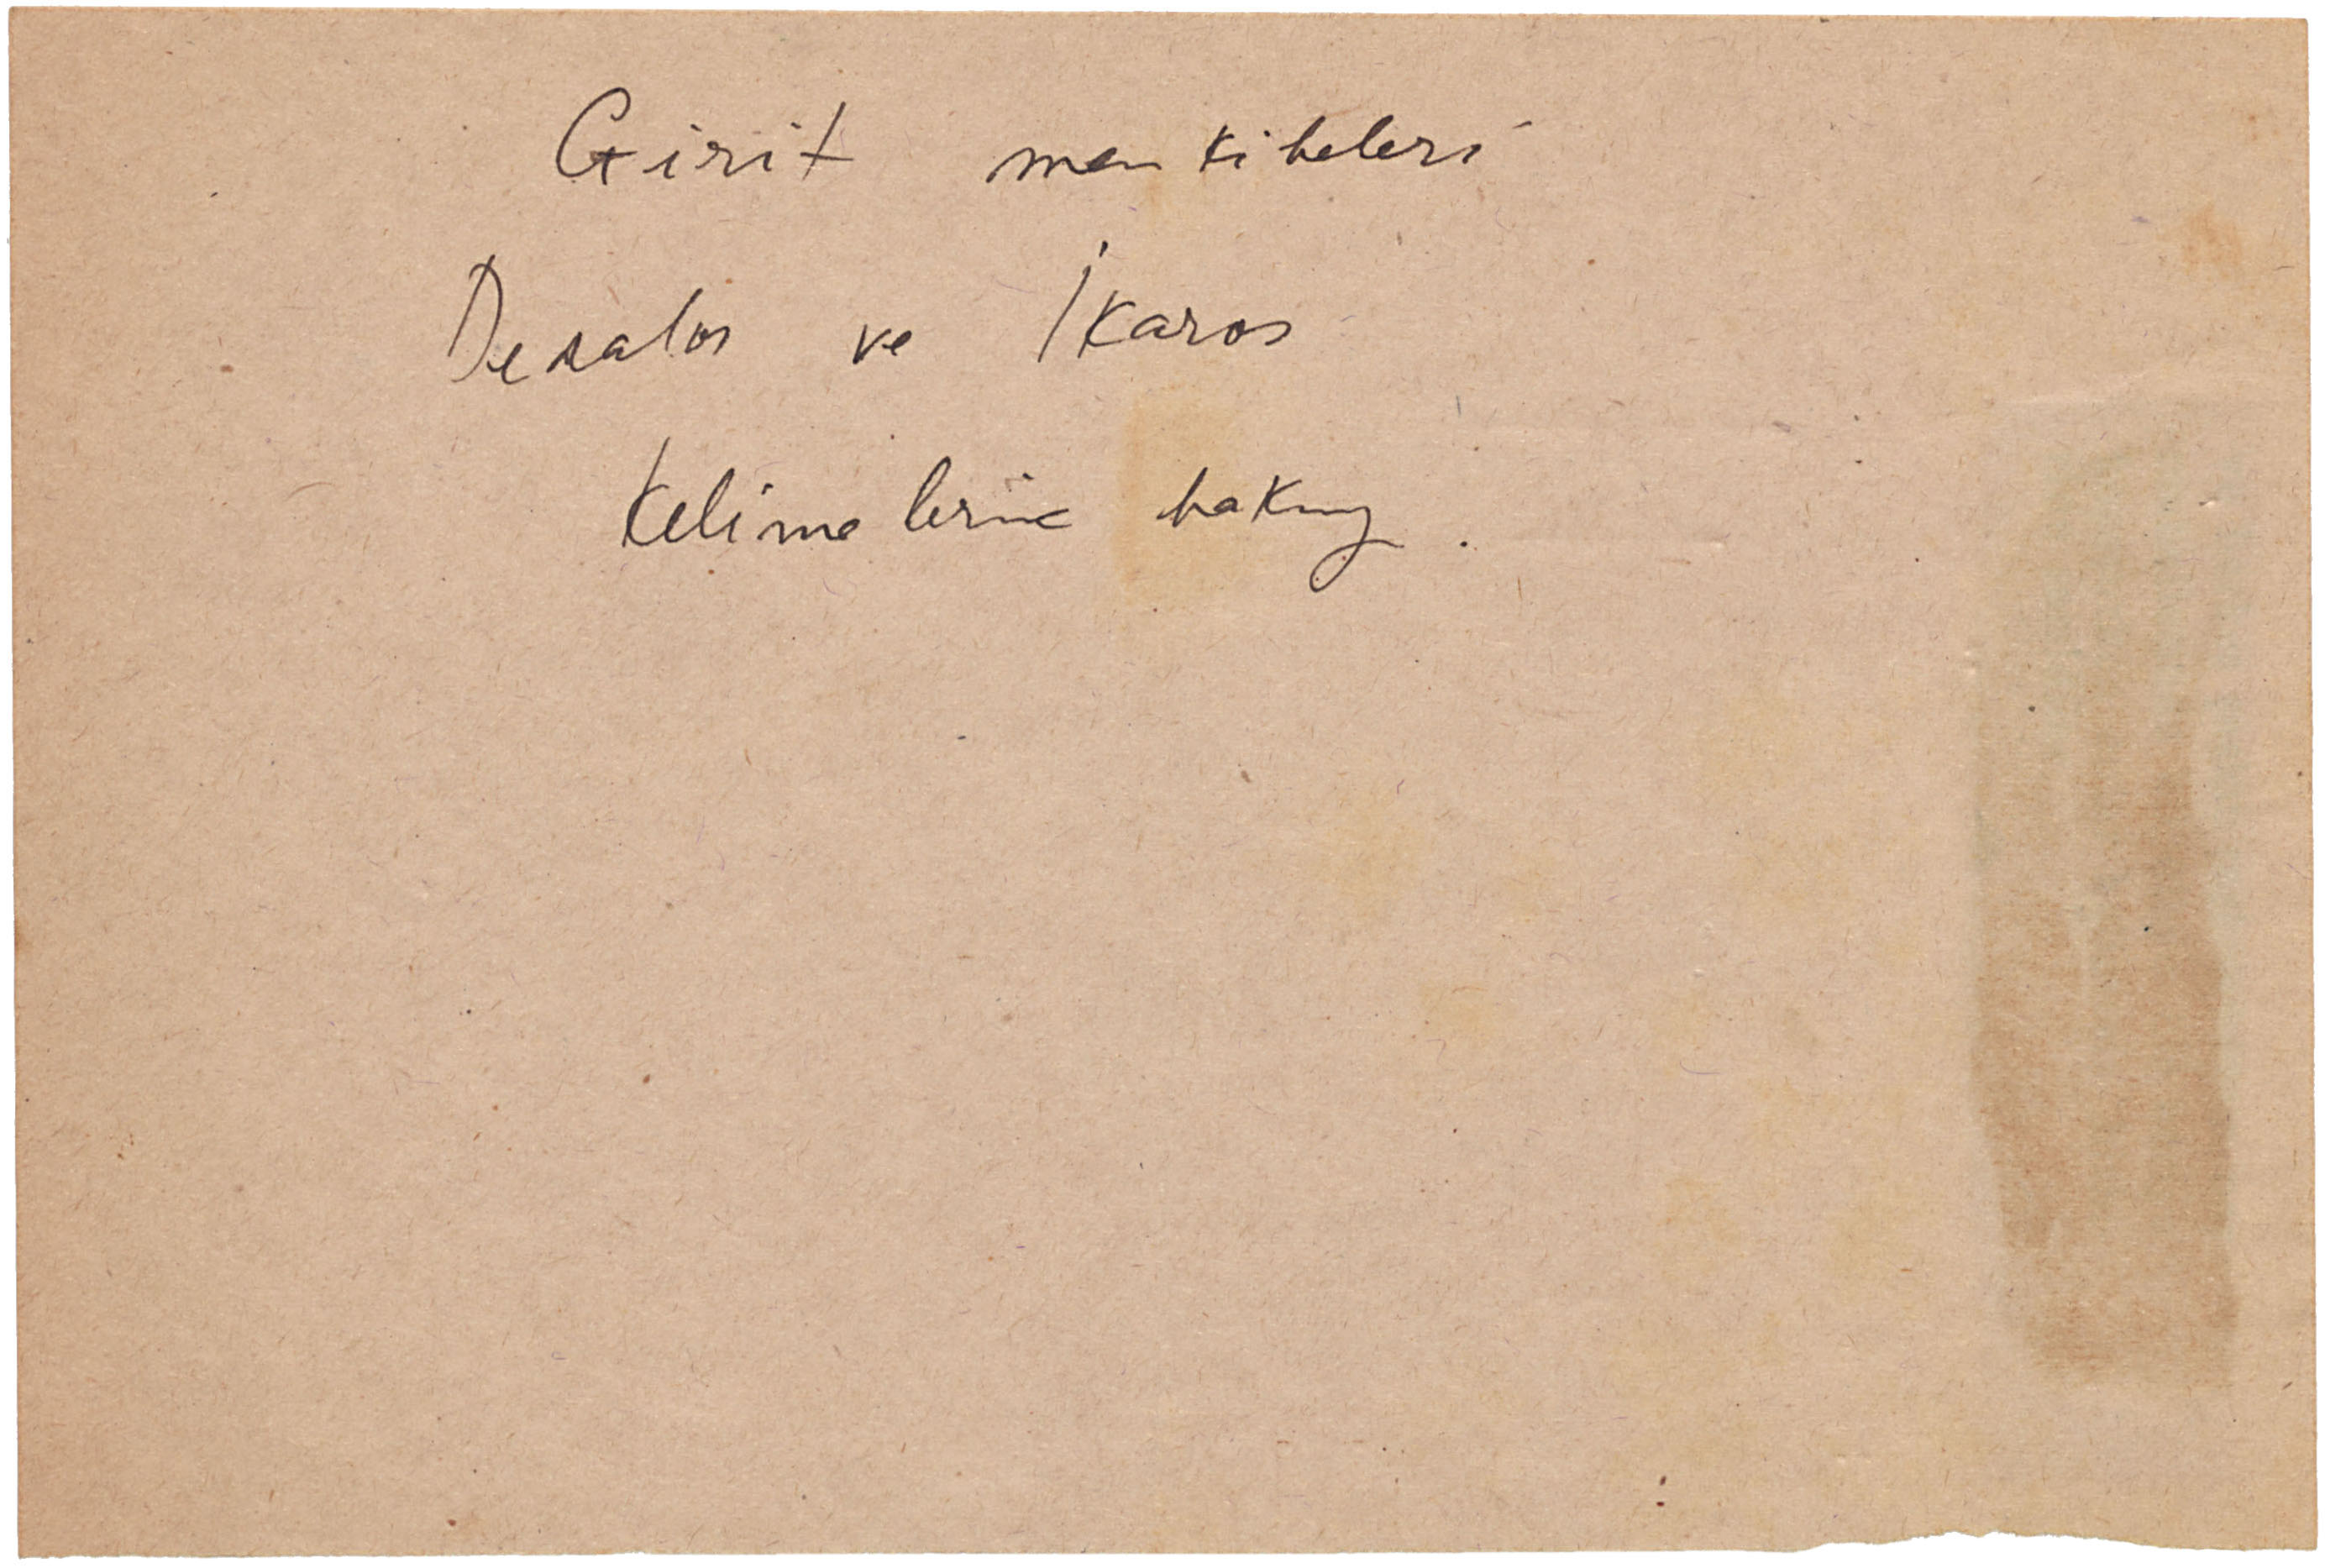 Girit menkibeleri
Dedalos ve İkaros
kelimelerine bakınız.